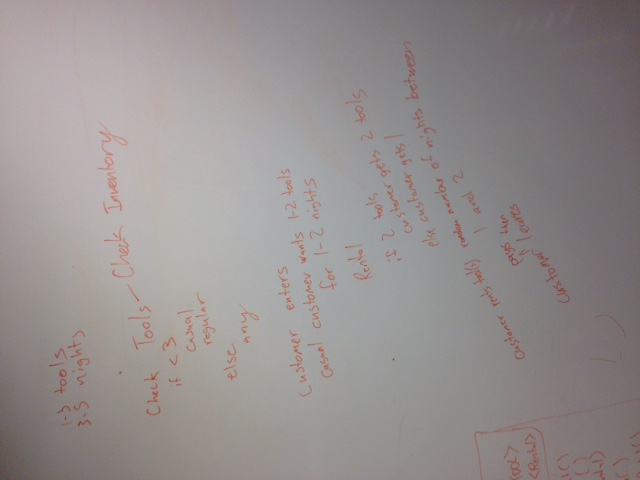 1-3 tools
3-5 nights
Check Tools - Check Inventory
if < 3
casual
regular
else
any
Customer enters
Casual customer wants 1-2 tools
for 1-2 nights
Rental
if 2 tools
customer gets 2 tools
else customer gets 1
customer rents tool(s) random number of nights between
1 and 2
pays then
customer ^ leaves
<Rental>